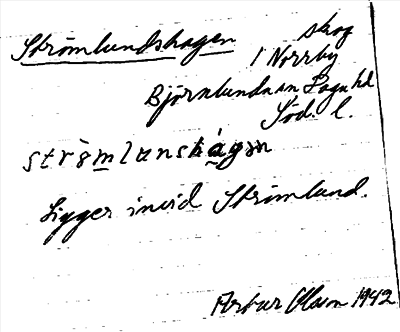 Strömlundshagen skog
i Norrby
Björnlunda sn Daga hd
Söd. l.
strömlanshagen
Ligger invid Strömlund.
Arthur Olsson 1942